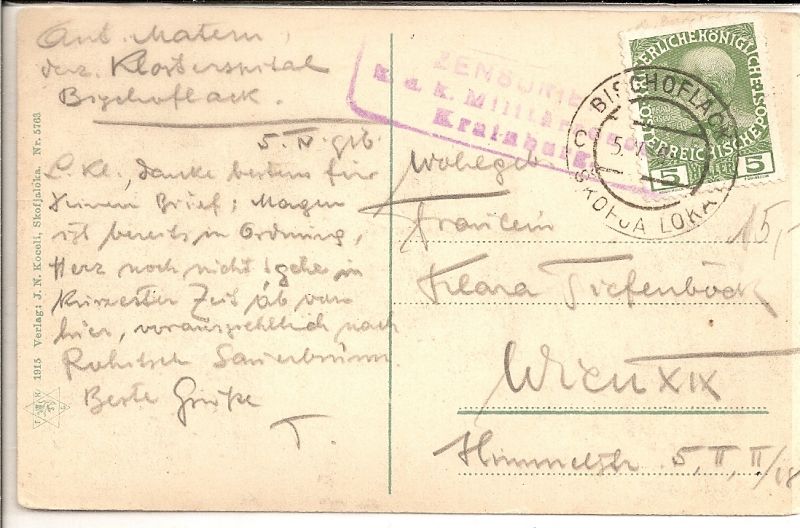 Ant. Matern,
dzz. Klosterspital
Bischoflack.
5. IV. 916.
L. Kl., danke bestens für
Deinen Brief; Magen
ist bereits in Ordnung,
Herz noch nicht; gehe in
kürzester Zeit ab von
hier, voraussichtlich nach
Rohitsch Sauerbrunn
Beste Grüße
T.
1915 Verlag: J. N. Koceli, Skofjaloka. Nr. 5763
ZENSURI
k. u. k. Militär
Krainburg
BISCHOFLACK
5.
C
SKOFJA LOKA
KAISERLICHE KÖNIGLICHE
ÖSTERREICHISCHE
5 HELLER 5
Wohlgeb.
Fräulein
15,-
Klara Tiefenböck
Wien XIX
5, II, II/18